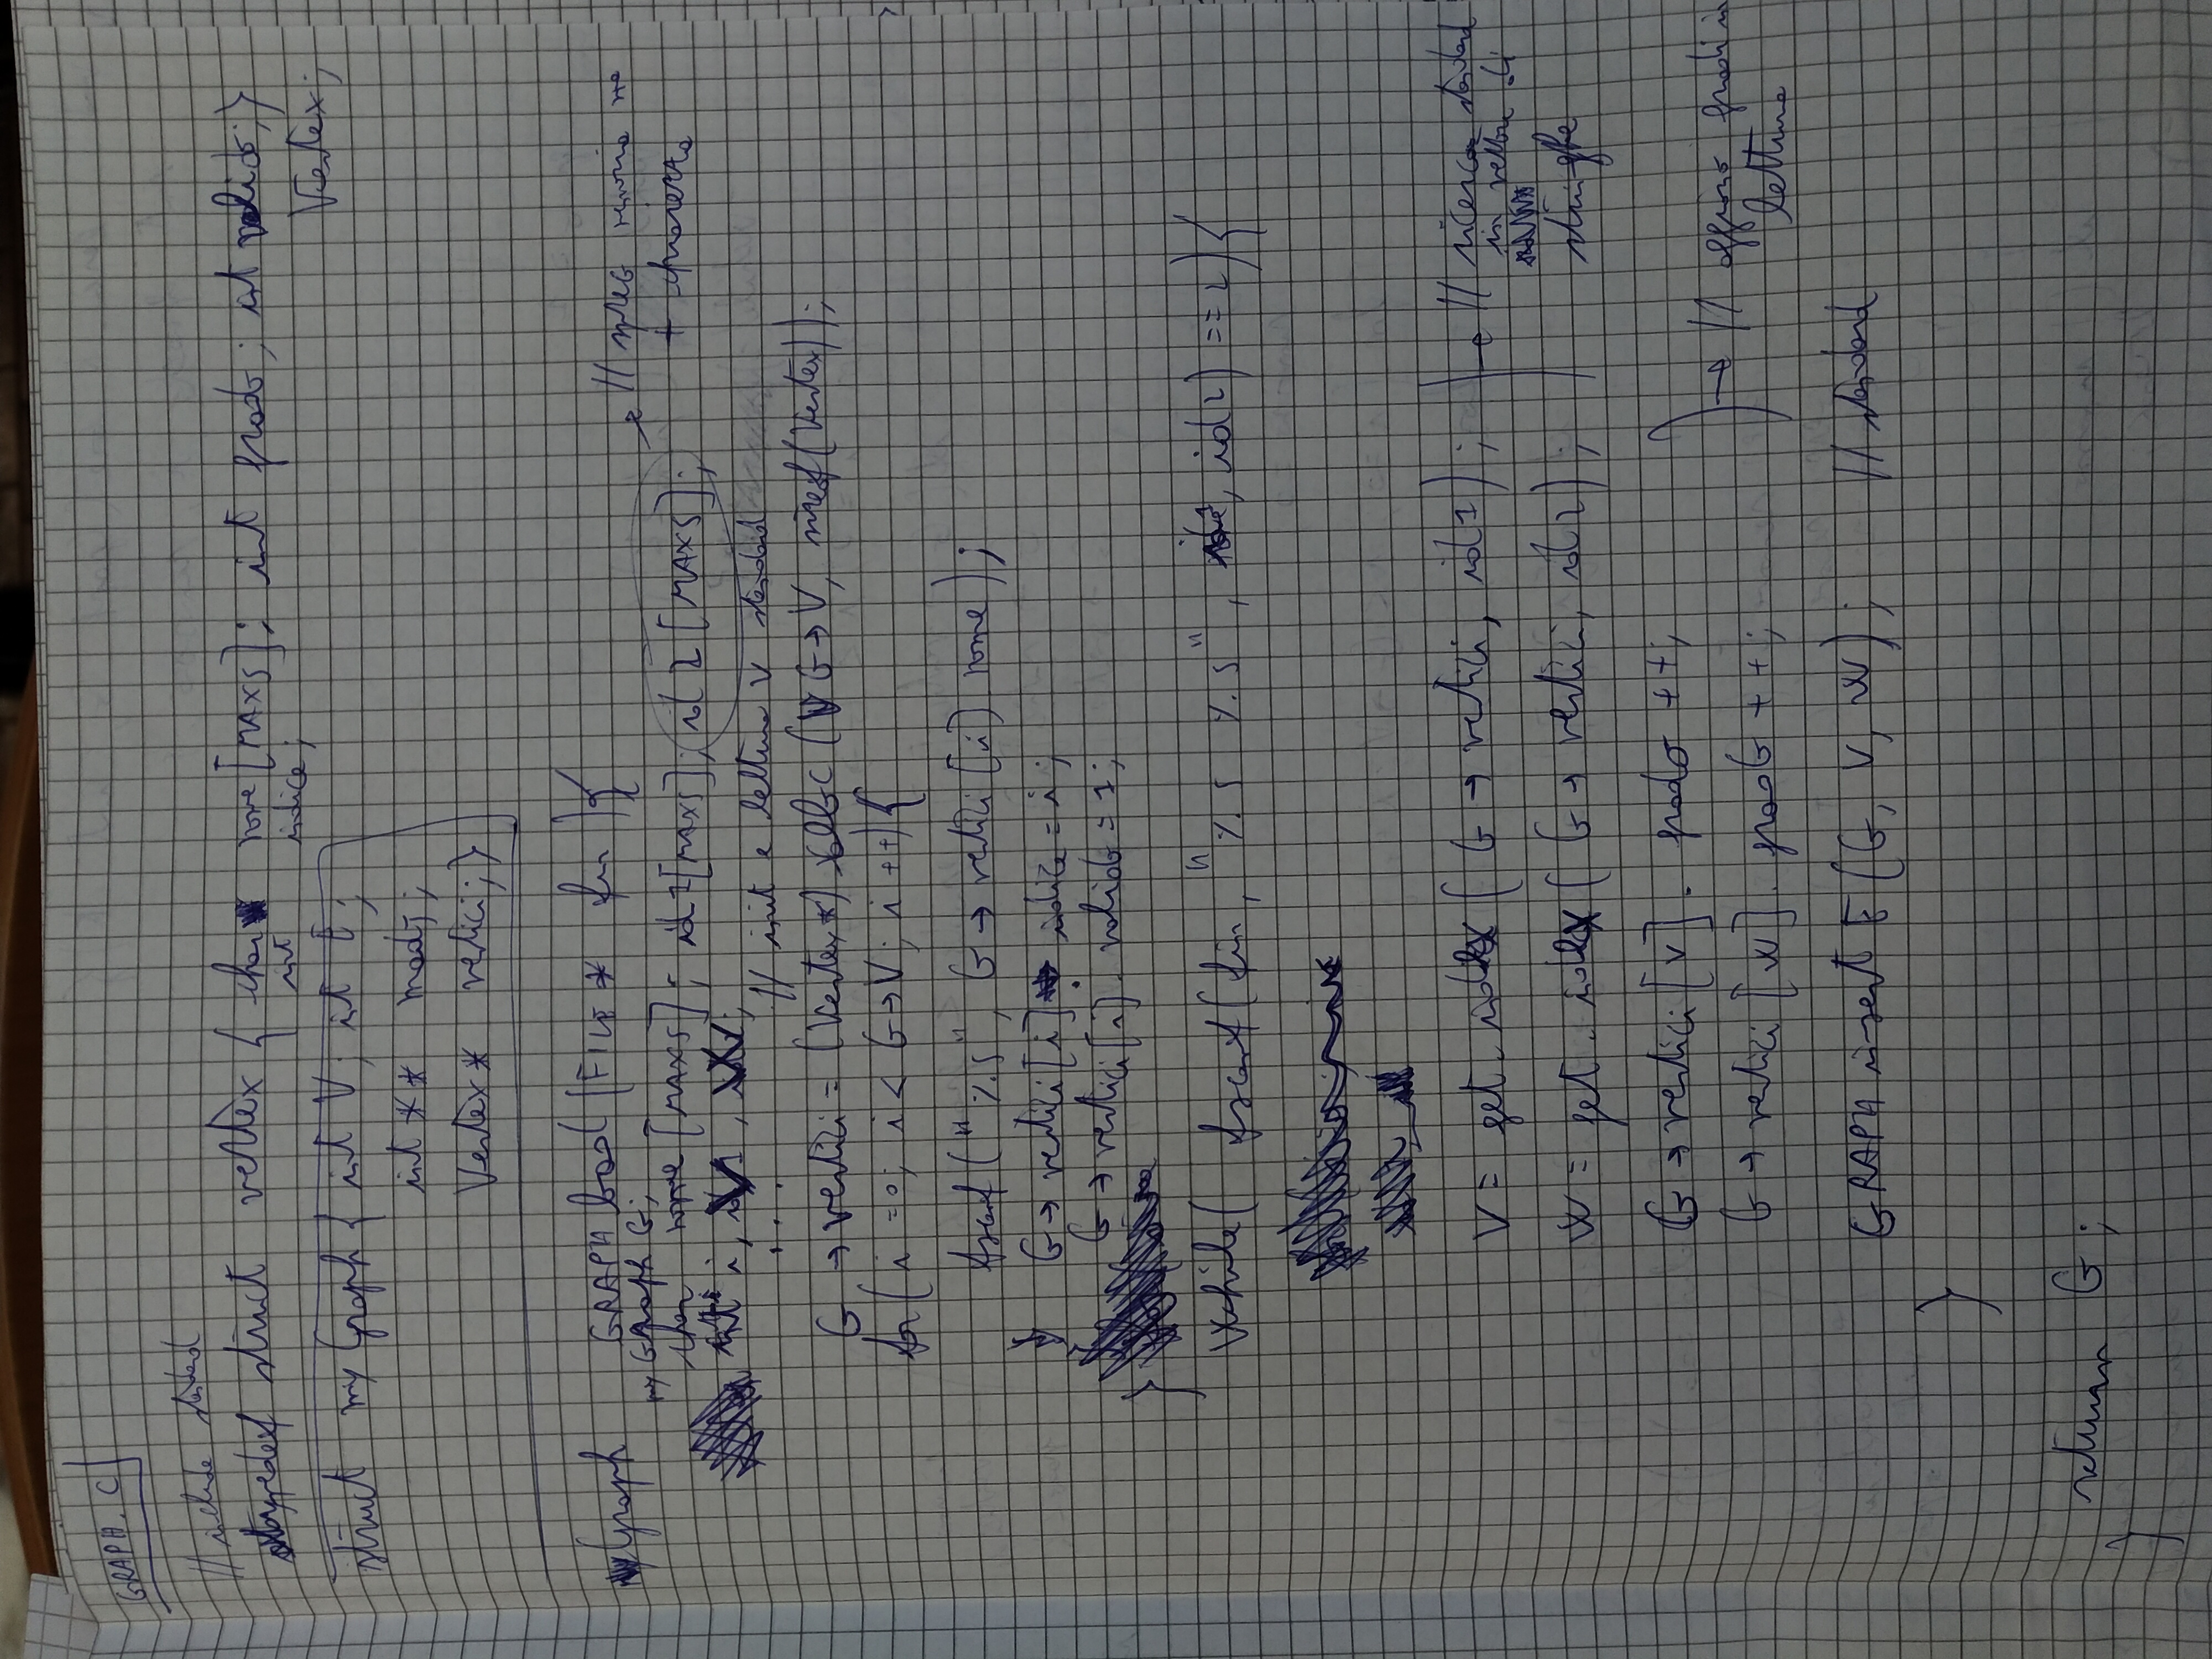 GRAPH.C
// include standard
typedef struct vertex { char nome[MAXS]; int grado; int valido;}
int indice;
Vertex;
struct myGraph { int V; int E;
int ** madj;
Vertex * vertici;}
Graph GRAPHload (FILE * fin ){
myGraph G;
char nome [MAXS]; id1[MAXS]; id2[MAXS];
// spreco memoria ma
+ chiarezza
int i,
. . . // init e lettura V standard
G → vertici = (Vertex *) calloc (G→V, sizeof(Vertex));
for( i =0; i < G→V; i ++){
fscanf("%s", G → vertici [i] nome);
G → vertici[i]. indice = i;
G → vertici[i]. valido = 1;
}
While( fscanf(fin, "%s %s", id1, id2) == 2){
V = get.index ( G → vertici, id1);
// ricerca standard
in vettore di
W = get.index ( G → vertici, id2);
stringhe
G → vertici [V]. grado ++;
G → vertici [W]. grado ++;
// aggiorno gradi in
lettura
GRAPH insert E (G, V, W); // standard
}
return G;
}